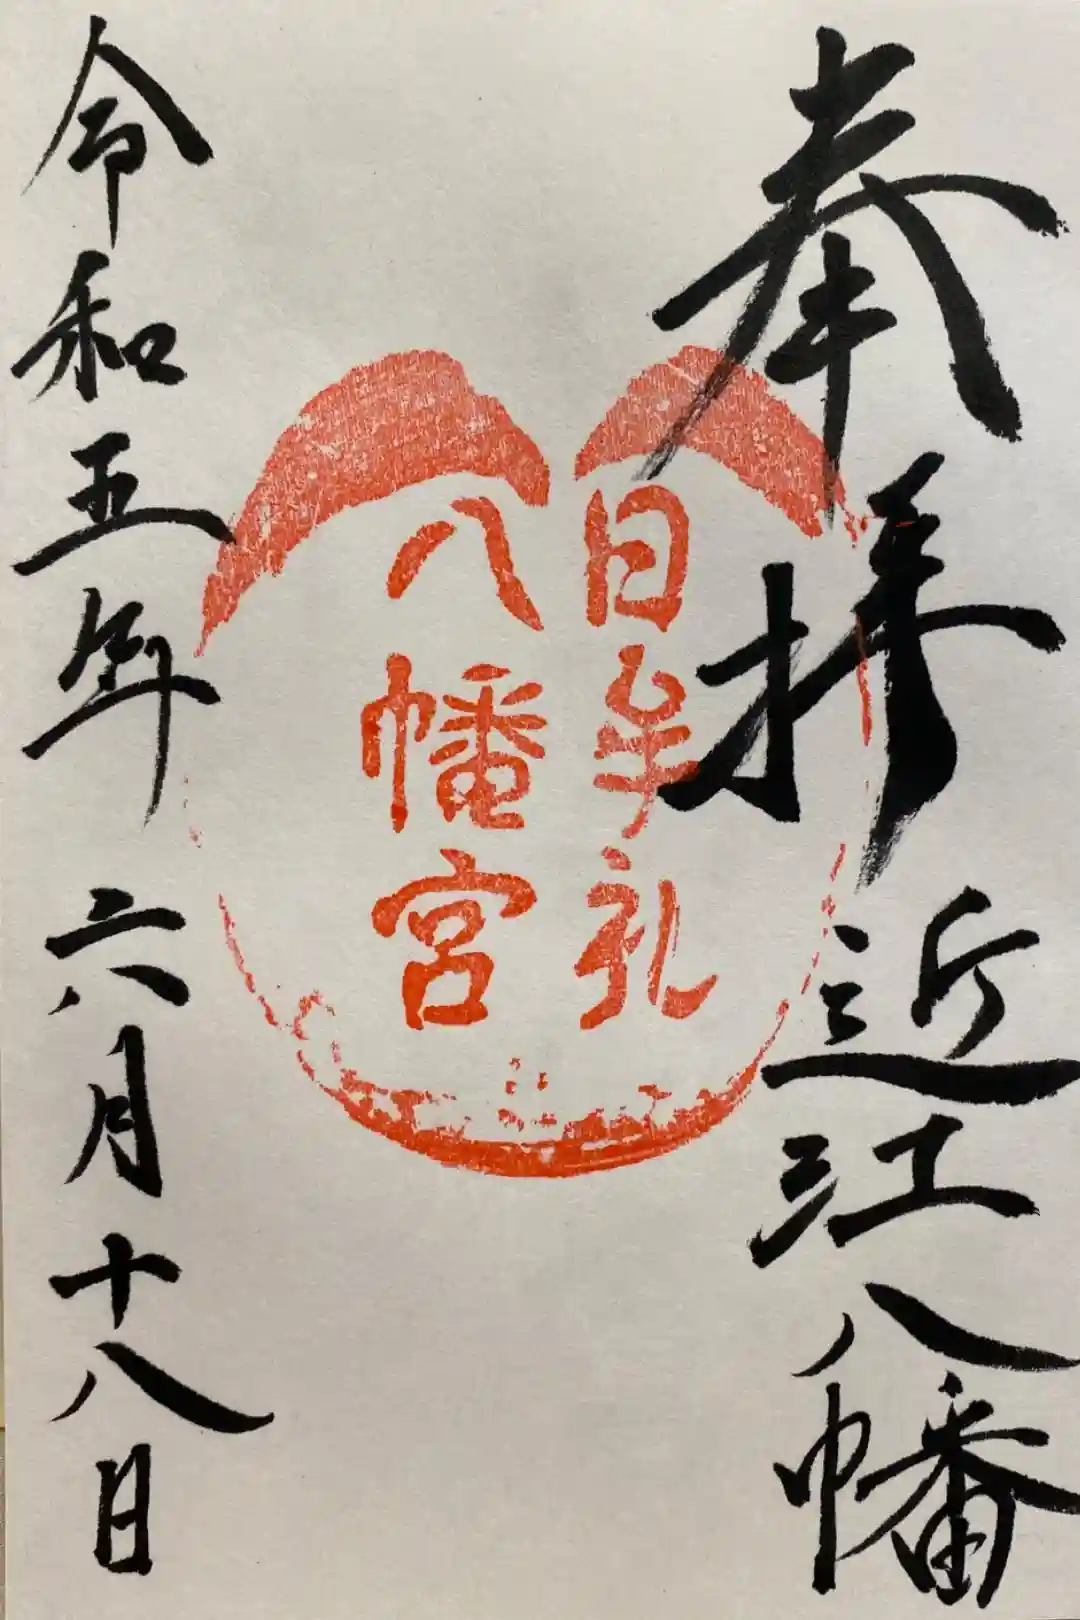 奉拝 近江八幡
日牟礼
八幡宮
令和五年 六月十八日